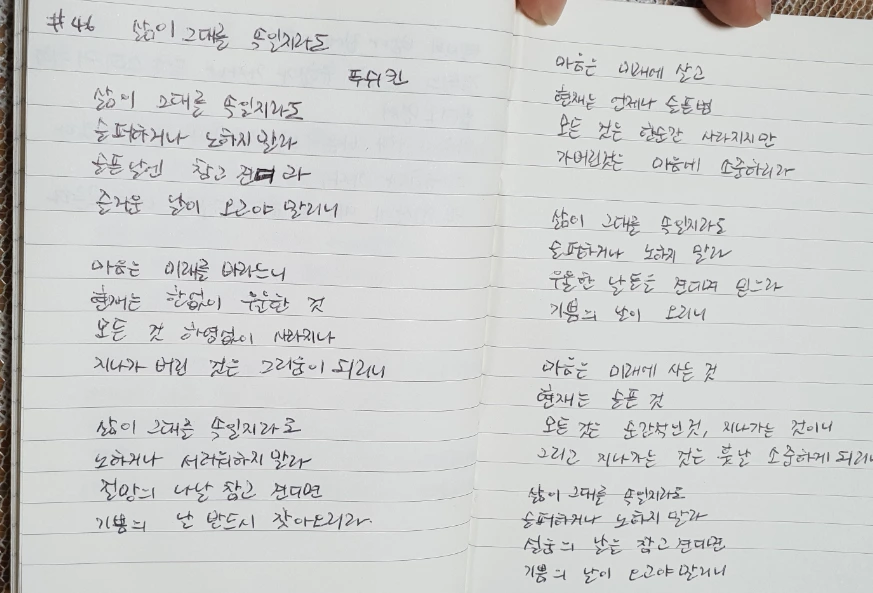 #46 삶이 그대를 속일지라도
푸쉬킨
삶이 그대를 속일지라도
슬퍼하거나 노하지 말라
슬픈 날엔 참고 견디라
즐거운 날이 오고야 말리니
마음은 미래를 바라느니
현재는 한없이 우울한 것
모든 것 하염없이 사라지나
지나가 버린 것은 그리움이 되리니
삶이 그대를 속일지라도
노하거나 서러워하지 말라
절망의 나날 참고 견디면
기쁨의 날 반드시 찾아오리라
마음은 미래에 살고
현재는 언제나 슬픈법
모든 것은 한순간 사라지지만
가버린것은 마음에 소중하리라
삶이 그대를 속일지라도
슬퍼하거나 노하지 말라
우울한 날들을 견디며 믿으라
기쁨의 날이 오리니
마음은 미래에 사는 것
현재는 슬픈 것
모든 것은 순간적인 것, 지나가는 것이니
그리고 지나가는 것은 훗날 소중하게 되리니
삶이 그대를 속일지라도
슬퍼하거나 노하지 말라
설움의 날을 참고 견디면
기쁨의 날이 오고야 말리니